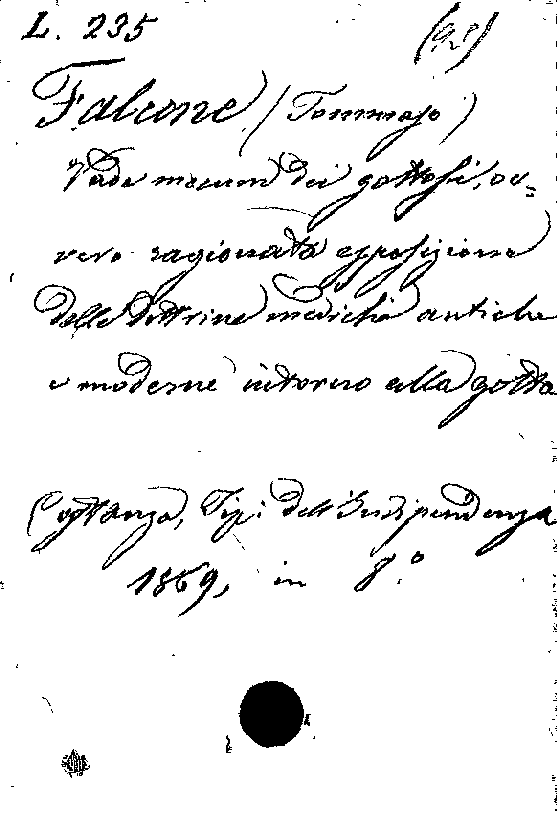 L. 235
Falcone (Tommaso)
Vade mecum dei gottosi, ov=
vero ragionata esposizione
delle dottrine mediche antiche
e moderne intorno alla gotta
Costanza, Tip: dell'Indipendenza
1869, in 8.°